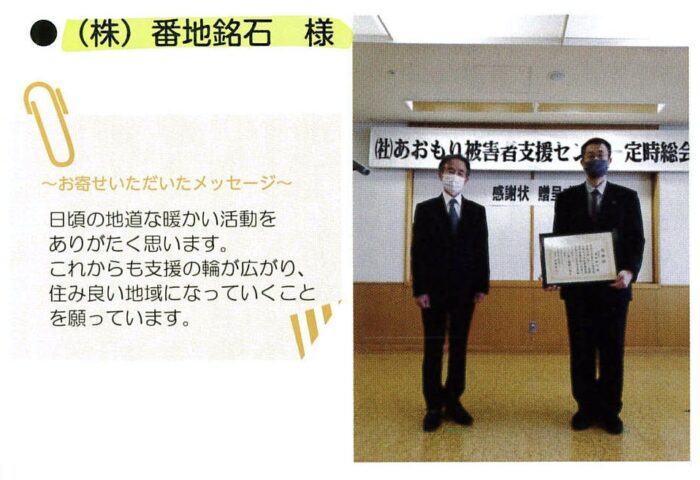 ●(株)番地銘石 様
~お寄せいただいたメッセージ~
日頃の地道な暖かい活動を
ありがたく思います。
これからも支援の輪が広がり、
住み良い地域になっていくこと
を願っています。
(社)あおもり被害者支援センター定時総会
感謝状 贈呈